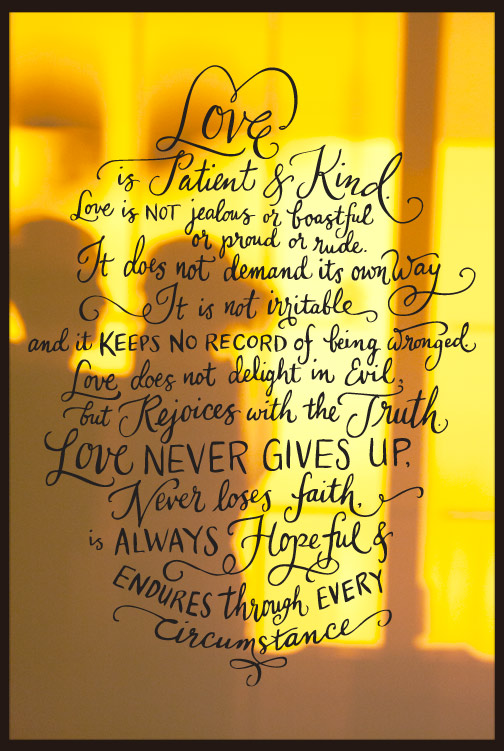 Love
is Patient & Kind.
Love is NOT jealous or boastful
or proud or rude.
It does not demand its own Way
It is not irritable,
and it KEEPS NO RECORD of being wronged
Love does not delight in Evil,
but Rejoices with the Truth.
Love NEVER GIVES UP,
Never loses faith,
is ALWAYS Hopeful &
ENDURES through EVERY
Circumstance